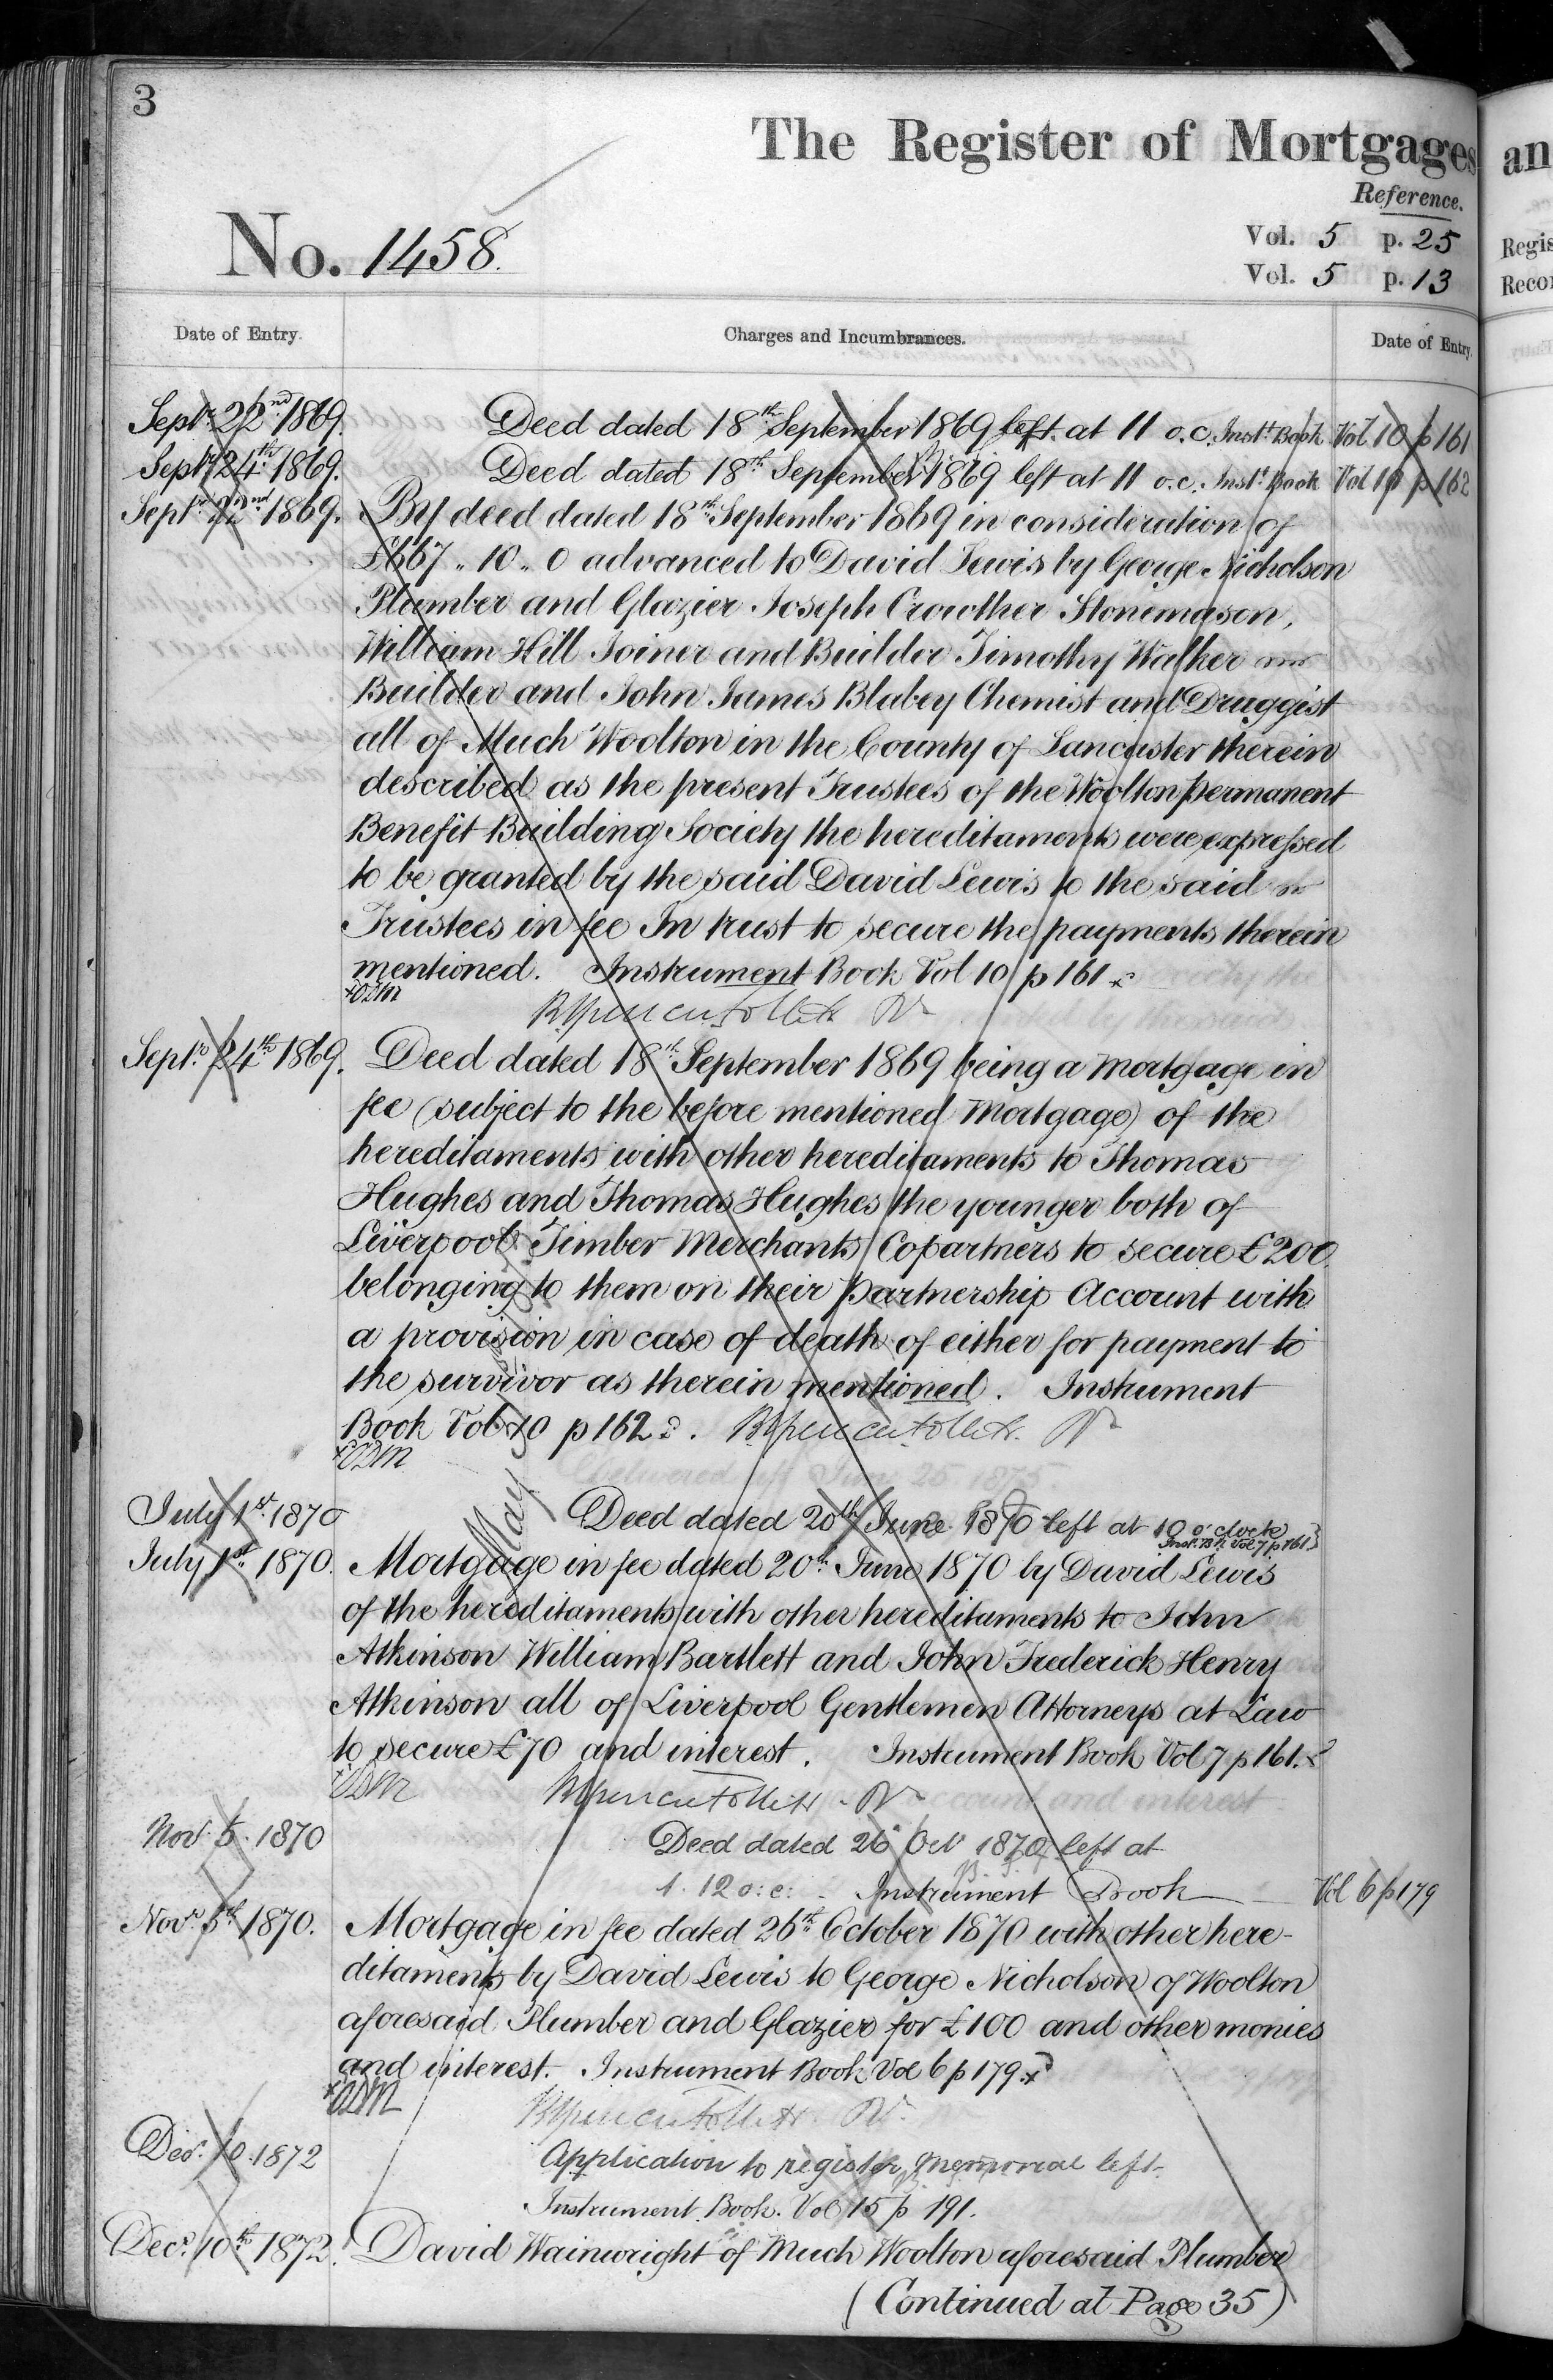 3
The Register of Mortgages
an
Reference.
No. 1458.
Vol. 5 p. 25
Vol. 5 p. 13
Regis
Recor
Date of Entry.
Charges and Incumbrances.
Date of Entry.
Septr. 22nd 1869. Deed dated 18th September 1869 left at 11 o.c. Inst. Book Vol 10 p 161
Septr. 24th 1869. Deed dated 18th September 1869 left at 11 o.c. Inst. Book Vol 10 p 162
Septr. 22nd 1869. By deed dated 18th September 1869 in consideration of
£667 „ 10 „ 0 advanced to David Lewis by George Nicholson
Plumber and Glazier Joseph Crowther Stonemason,
William Hill Joiner and Builder Timothy Walker
Builder and John James Blabey Chemist and Druggist
all of Much Woolton in the County of Lancaster therein
described as the present Trustees of the Woolton Permanent
Benefit Building Society the hereditaments were expressed
to be granted by the said David Lewis to the said
Trustees in fee In trust to secure the payments therein
mentioned. Instrument Book Vol 10 p 161
Septr. 24th 1869. Deed dated 18th September 1869 being a Mortgage in
fee (subject to the before mentioned Mortgage) of the
hereditaments with other hereditaments to Thomas
Hughes and Thomas Hughes the younger both of
Liverpool Timber Merchants Copartners to secure £200.
belonging to them on their Partnership Account with
a provision in case of death of either for payment to
the survivor as therein mentioned. Instrument
Book Vol 10 p 162
May
July 1st 1870 Deed dated 20th June 1870 left at 10 o'clock
Inst. Bk. Vol 7 p 161
July 1st 1870. Mortgage in fee dated 20th June 1870 by David Lewis
of the hereditaments with other hereditaments to John
Atkinson William Bartlett and John Frederick Henry
Atkinson all of Liverpool Gentlemen Attorneys at Law
to secure £70 and interest. Instrument Book Vol 7 p 161.
Nov. 5. 1870 Deed dated 26 Oct 1870 left at
1. 12 o:c: Instrument Book Vol 6 p 179
Novr. 5th 1870. Mortgage in fee dated 26th October 1870 with other here-
ditaments by David Lewis to George Nicholson of Woolton
aforesaid Plumber and Glazier for £100 and other monies
and interest. Instrument Book Vol 6 p 179.
Decr. 10. 1872 Application to register Memorial left.
Instrument Book. Vol 15 p 191.
Decr. 10th 1872. David Wainwright of Much Woolton aforesaid Plumber
(Continued at Page 35)